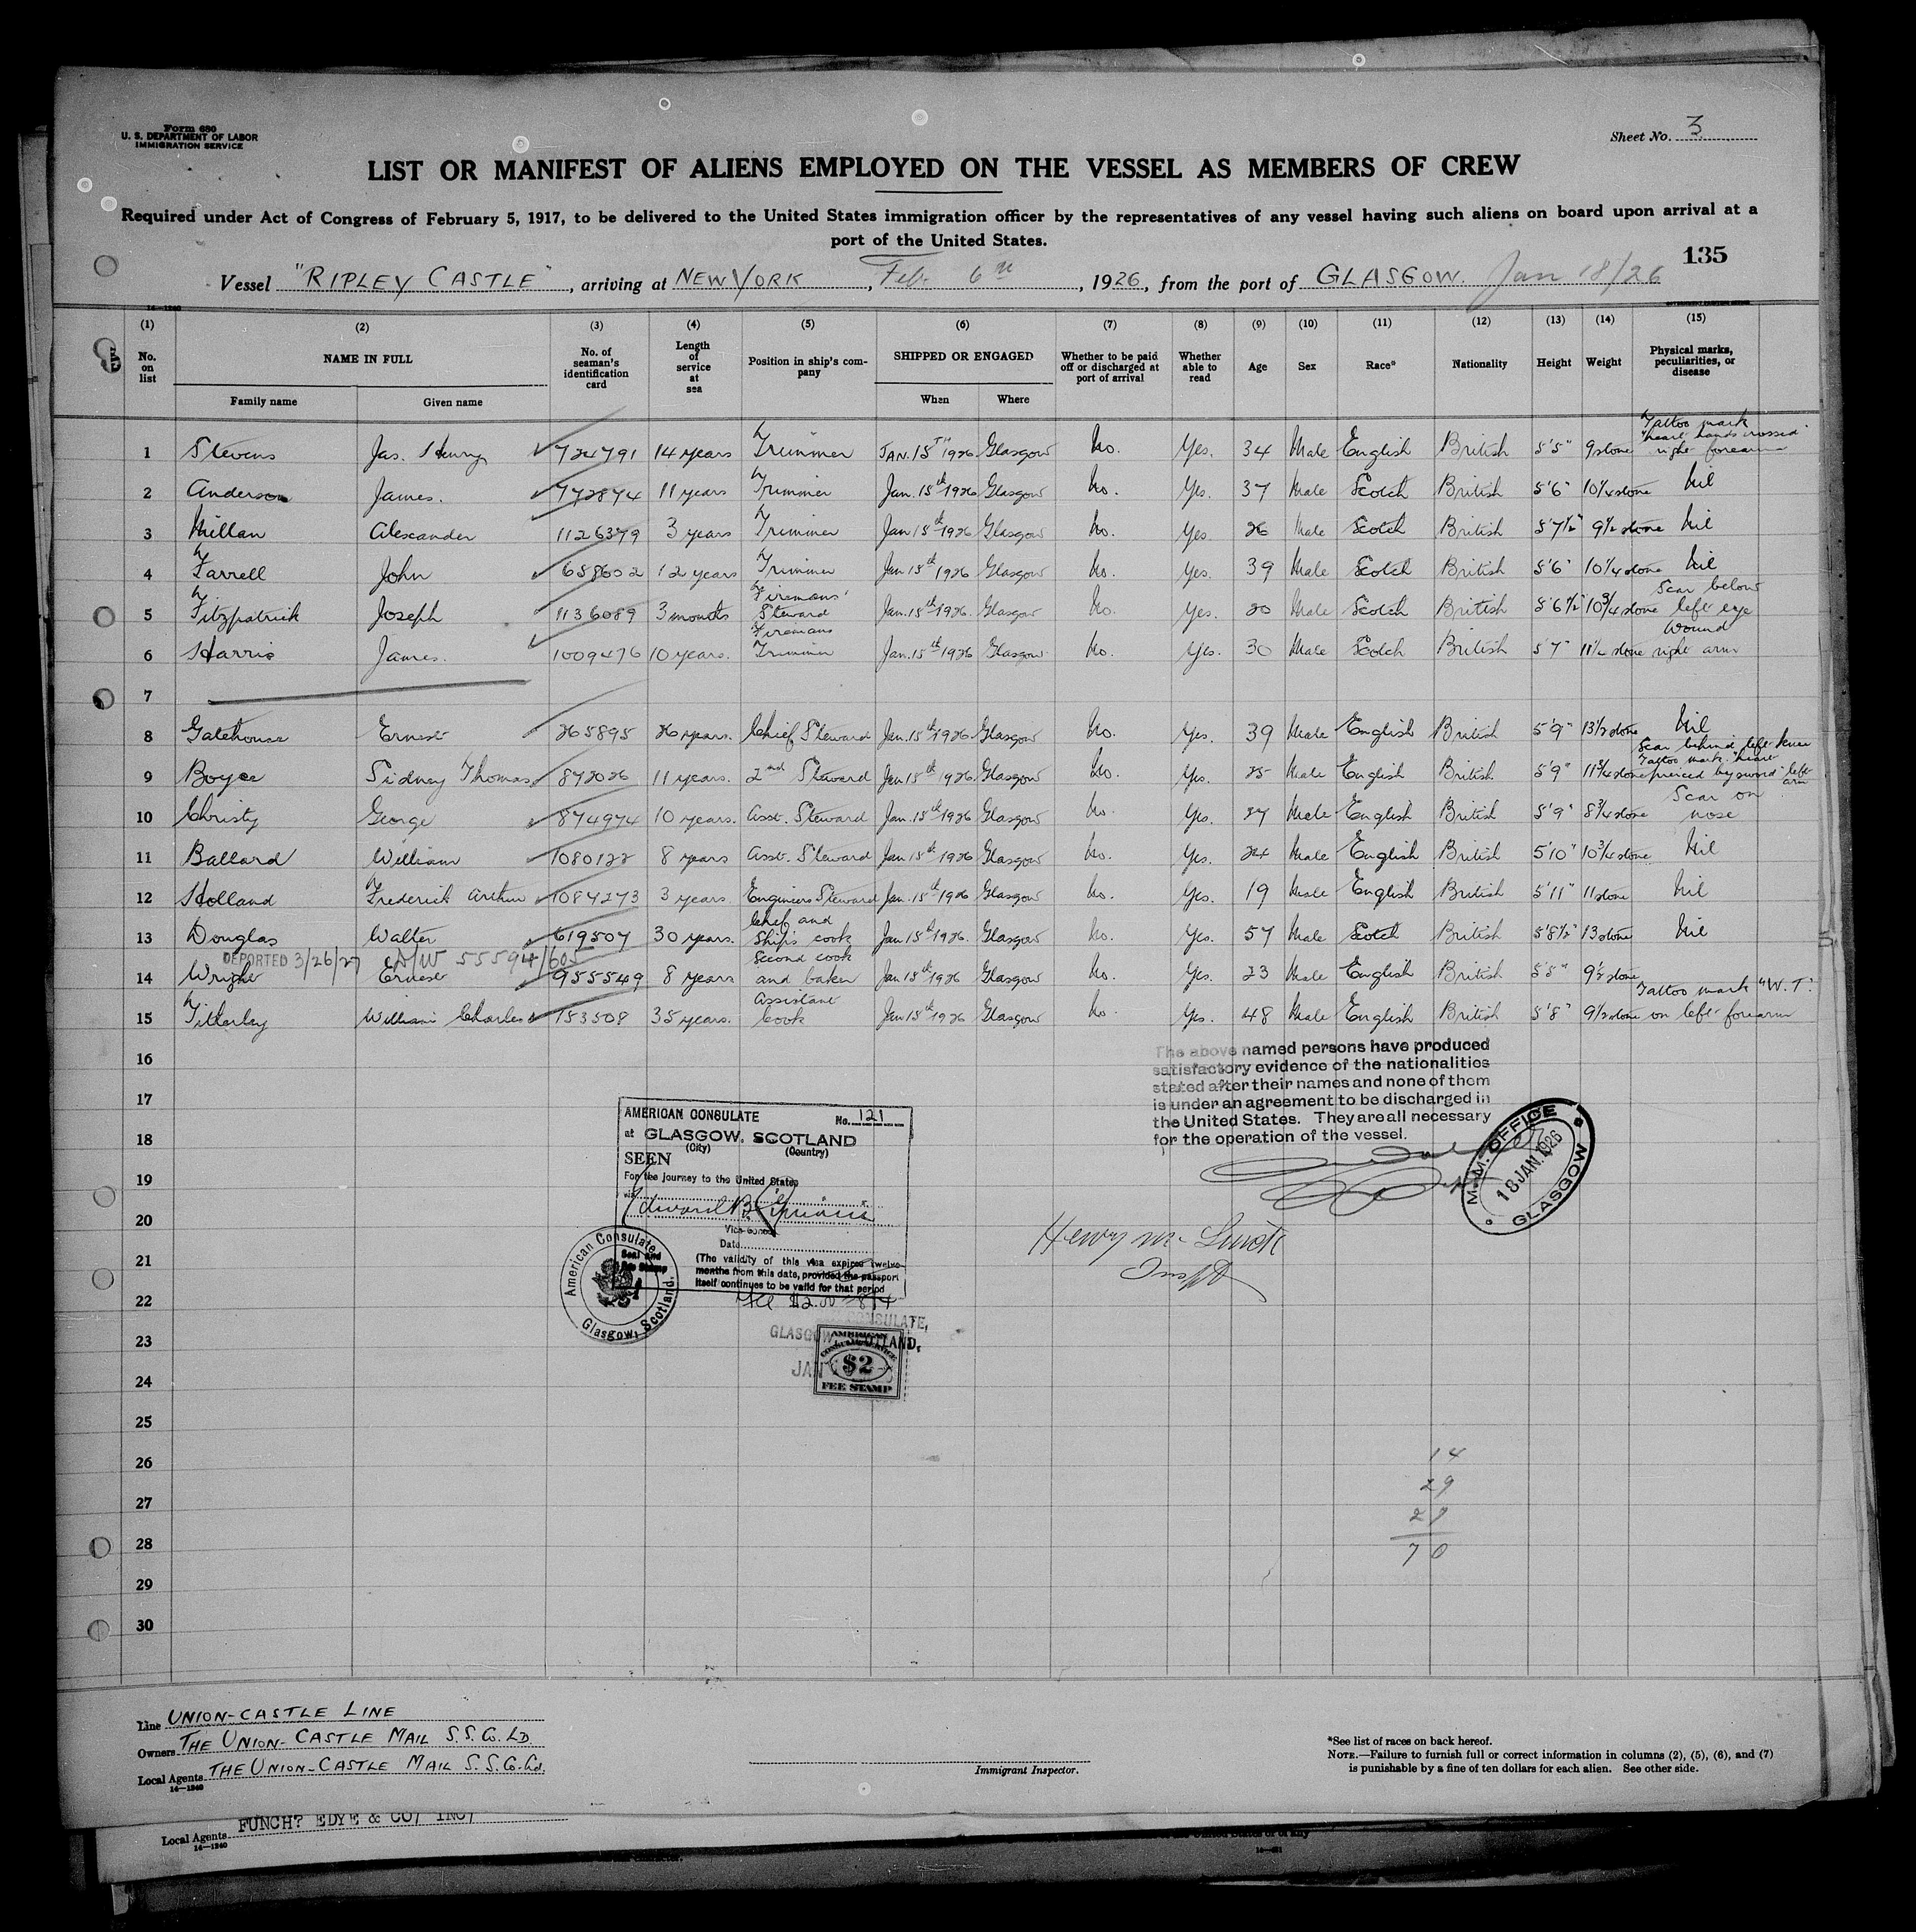 Form 680
U. S. DEPARTMENT OF LABOR
IMMIGRATION SERVICE
Sheet No. 3
LIST OR MANIFEST OF ALIENS EMPLOYED ON THE VESSEL AS MEMBERS OF CREW
Required under Act of Congress of February 5, 1917, to be delivered to the United States immigration officer by the representatives of any vessel having such aliens on board upon arrival at a
port of the United States.
135
Vessel "RIPLEY CASTLE", arriving at NEW YORK, Feb. 6th, 1926, from the port of GLASGOW. Jan 18/26
14—1240
(1) (2) (3) (4) (5) (6) (7) (8) (9) (10) (11) (12) (13) (14) (15)
No. on list NAME IN FULL No. of seaman's identification card Length of service at sea Position in ship's company SHIPPED OR ENGAGED Whether to be paid off or discharged at port of arrival Whether able to read Age Sex Race* Nationality Height Weight Physical marks, peculiarities, or disease
Family name Given name When Where
1 Stevens Jas. Henry 724791 14 years Trimmer JAN. 15TH 1926 Glasgow No. Yes. 34 Male English British 5'5" 9 stone Tattoo mark "heart hands crossed" right forearm
2 Anderson James. 772874 11 years Trimmer Jan. 15th 1926 Glasgow No. Yes. 37 Male Scotch British 5'6" 10 1/4 stone Nil
3 Millan Alexander 1126379 3 years Trimmer Jan 15th 1926 Glasgow No. Yes. 26 Male Scotch British 5'7½" 9½ stone Nil
4 Farrell John 658602 12 years Trimmer Jan 15th 1926 Glasgow No. Yes. 39 Male Scotch British 5'6" 10 1/4 stone Nil
5 Fitzpatrick Joseph 1136089 3 months Firemans' Steward Jan. 15th 1926. Glasgow No. Yes. 20 Male Scotch British 5'6½" 10 3/4 stone Scar below left eye
6 Harris James. 1009476 10 years. Firemans Trimmer Jan. 15th 1926 Glasgow No. Yes. 30 Male Scotch British 5'7" stone Wound right arm
7
8 Gatehouse Ernest 265895 26 years. Chief Steward Jan. 15th 1926. Glasgow No. Yes. 39 Male English British 5'9" 13½ stone Nil
9 Boyce Sidney Thomas. 872026 11 years. 2nd Steward Jan 15th 1926. Glasgow No. Yes. 25 Male English British 5'9" 11 3/4 stone Scar behind left knee Tattoo mark "heart pierced by sword" left arm
10 Christy George 874974 10 years. Asst. Steward Jan. 15th 1926 Glasgow No. Yes. 27 Male English British 5'9" 8 3/4 stone Scar on nose
11 Ballard William 1080122 8 years Asst. Steward Jan 15th 1926 Glasgow No. Yes. 24 Male English British 5'10" 10 3/4 stone Nil
12 Holland Frederick Arthur 1084273 3 years Engineers Steward Jan. 15th 1926 Glasgow No. Yes. 19 Male English British 5'11" 11 stone Nil
13 Douglas Walter 619507 30 years. Chief and Ship's cook Jan 15th 1926. Glasgow No. Yes. 57 Male Scotch British 5'8½" 13 stone Nil
DEPORTED 3/26/27 55594/605
14 Wright Ernest 955549 8 years Second cook and baker Jan 15th 1926 Glasgow No. Yes. 23 Male English British 5'8" 9½ stone
15 Titterley William Charles 153508 35 years. Assistant Cook Jan 15th 1926 Glasgow No. Yes. 48 Male English British 5'8" 9½ stone Tattoo mark "W.T." on left forearm
16
17
18
19
20
21
22
23
24
25
26
27
28
29
30
The above named persons have produced
satisfactory evidence of the nationalities
stated after their names and none of them
is under an agreement to be discharged in
the United States. They are all necessary
for the operation of the vessel.
M.M. OFFICE
18 JAN. 1926
GLASGOW
AMERICAN CONSULATE No. 121
at GLASGOW, SCOTLAND
(City) (Country)
SEEN
For the journey to the United States
via
Edward B.
Vice Consul
Date
(The validity of this visa expires twelve
months from this date, provided the passport
itself continues to be valid for that period
American Consulate
Seal and
Fee Stamp
Glasgow, Scotland.
Fee $2.00
CONSULATE,
GLASGOW, SCOTLAND,
JAN
AMERICAN
CONSULAR SERVICE
$2
FEE STAMP
Henry
14
29
27
70
Line UNION-CASTLE LINE
Owners THE UNION-CASTLE MAIL S.S. Co. LD.
Local Agents THE UNION-CASTLE MAIL S.S. Co. Ld.
14—1240
Immigrant Inspector.
*See list of races on back hereof.
NOTE.—Failure to furnish full or correct information in columns (2), (5), (6), and (7)
is punishable by a fine of ten dollars for each alien. See other side.
Local Agents FUNCH? EDYE & CO/ INC/
14—1240